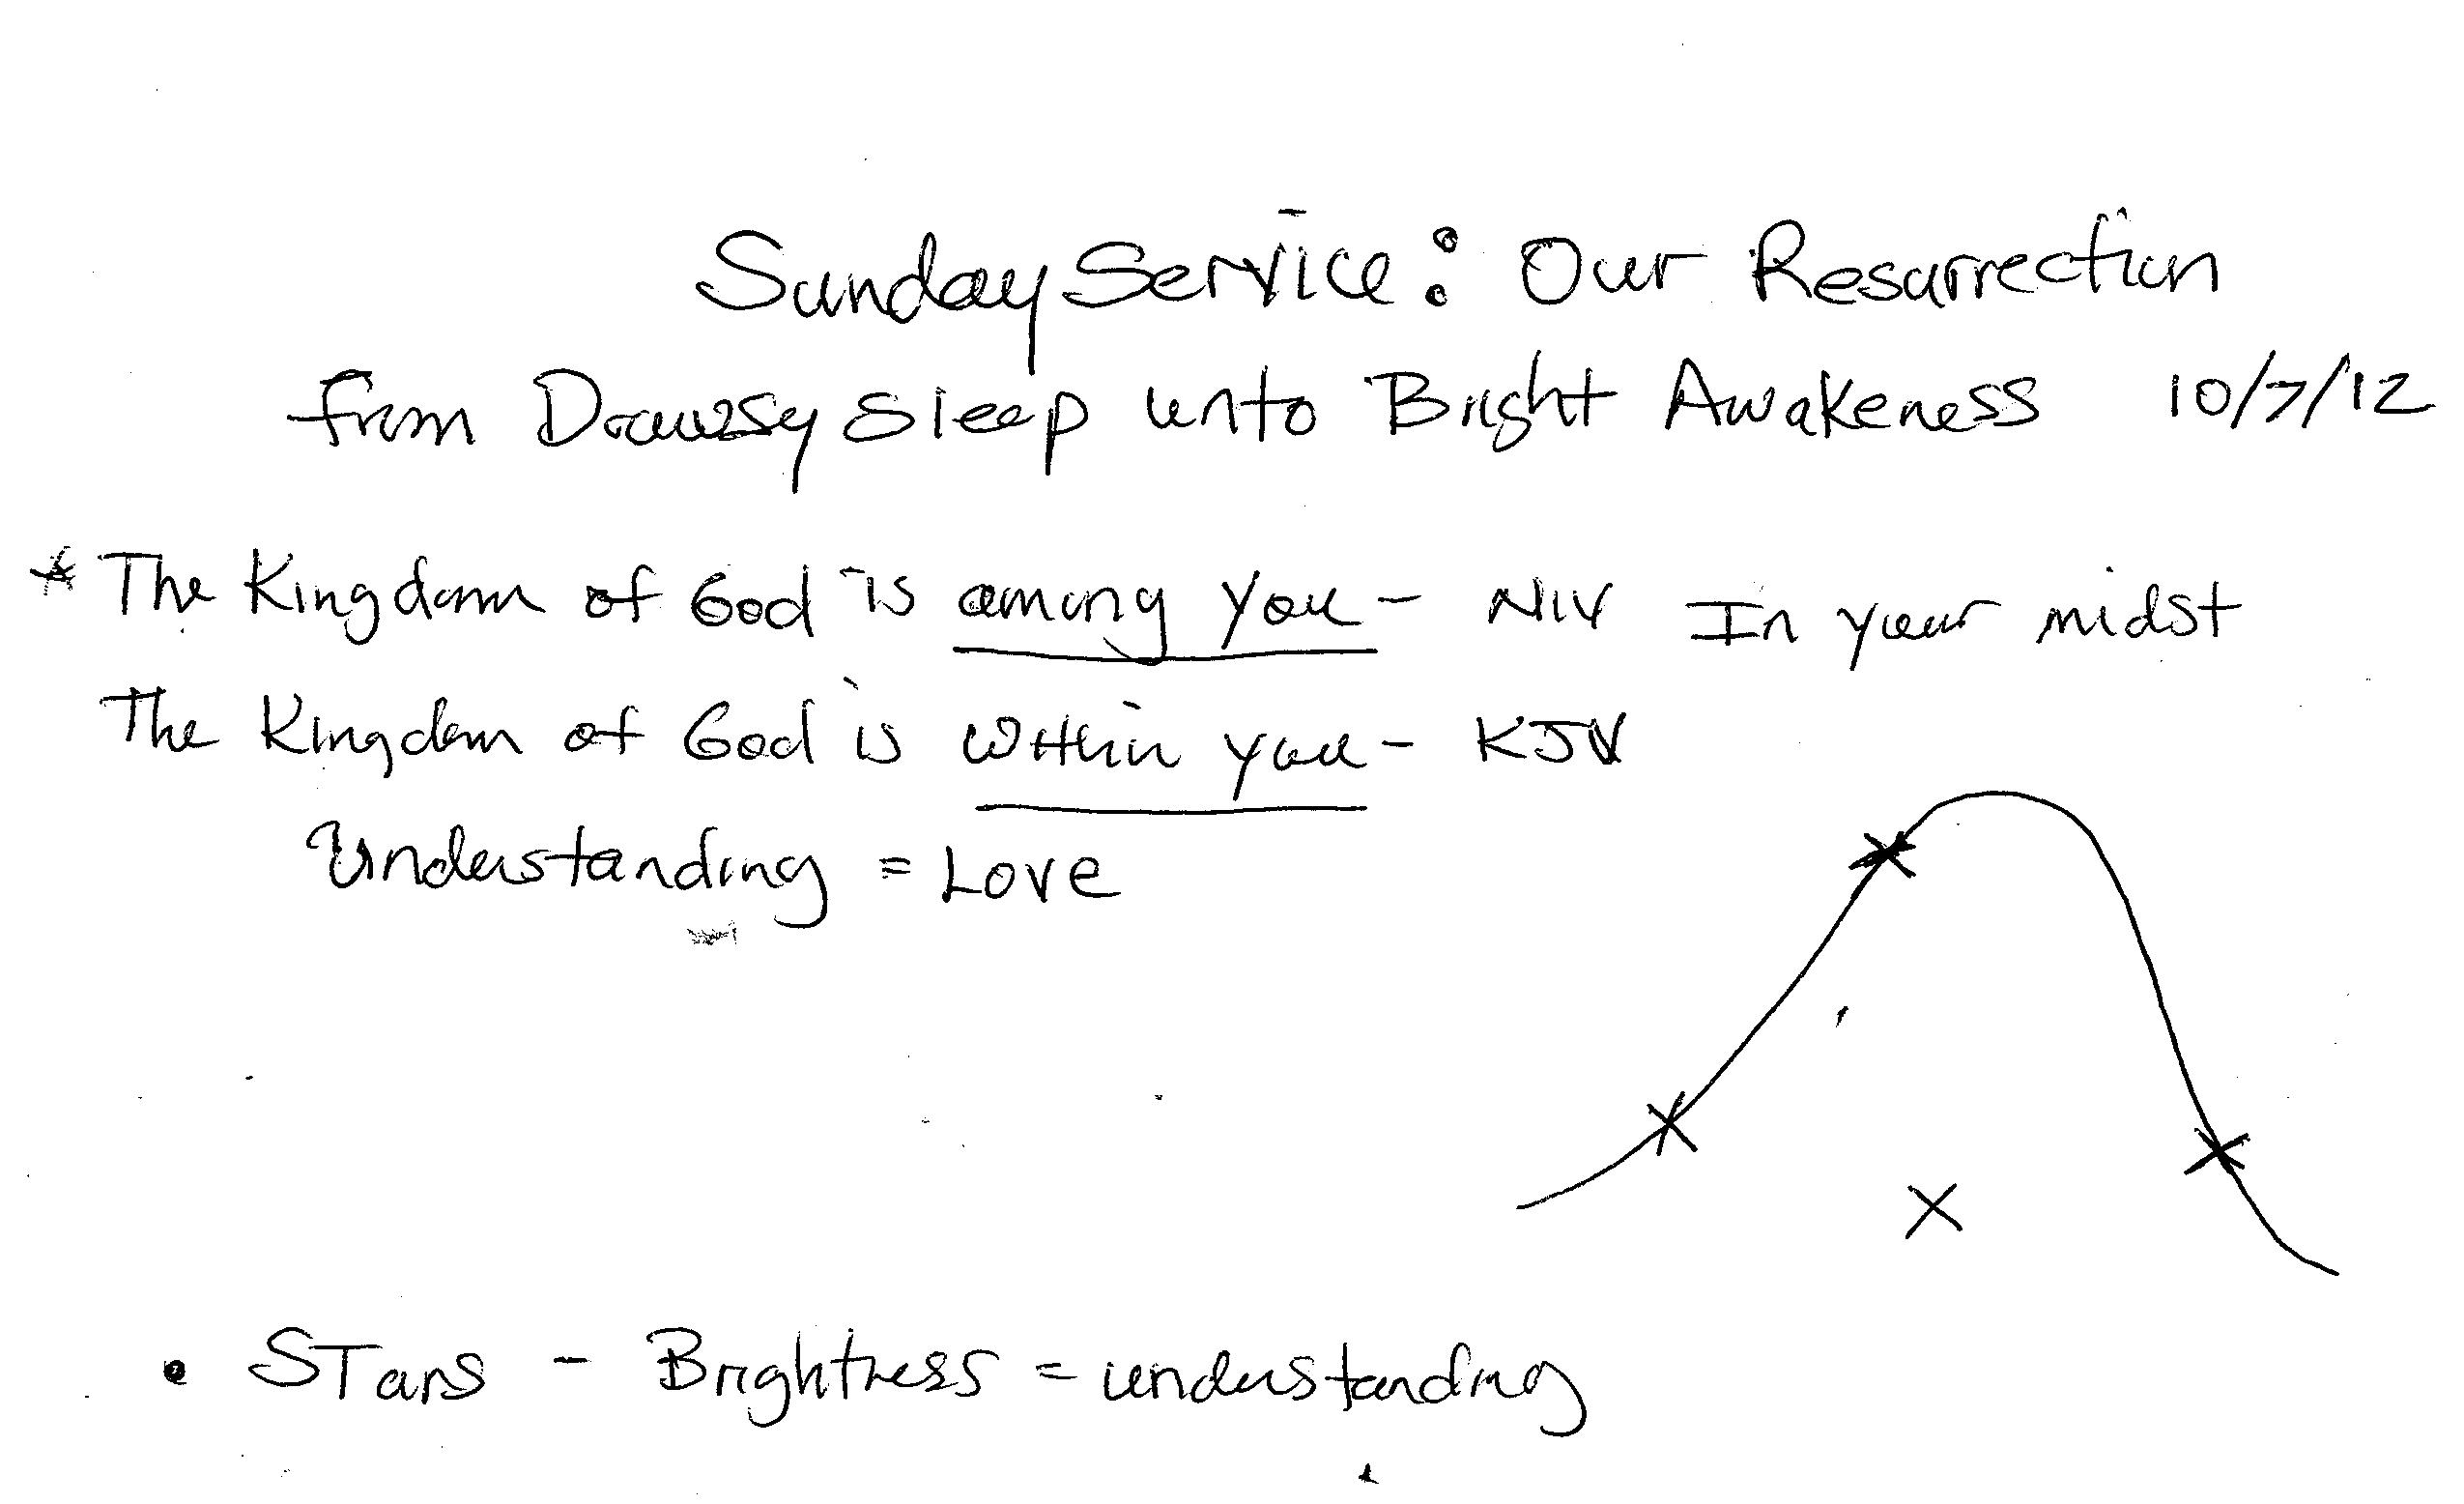 Sunday Service: Our Resurrection
from Drowsy Sleep unto Bright Awakeness 10/7/12
* The Kingdom of God is among you - NIV In your midst
The Kingdom of God is within you - KJV
Understanding = Love
• Stars - Brightness = understanding